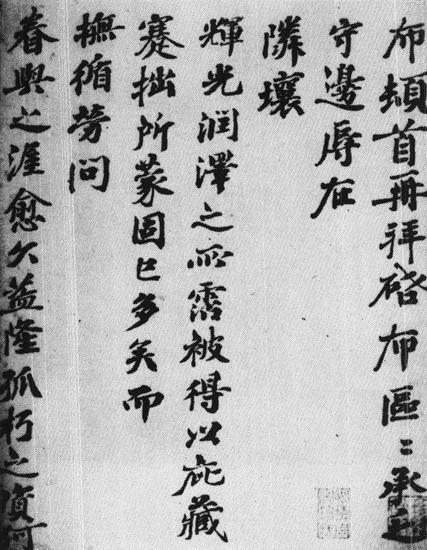 布頓首再拜啓布區〻承乏
守邊辱在
隣壤
輝光潤澤之所霑被得以庇藏
蹇拙所蒙固已多矣而
撫循勞問
眷與之渥愈久益隆孤朽之資何